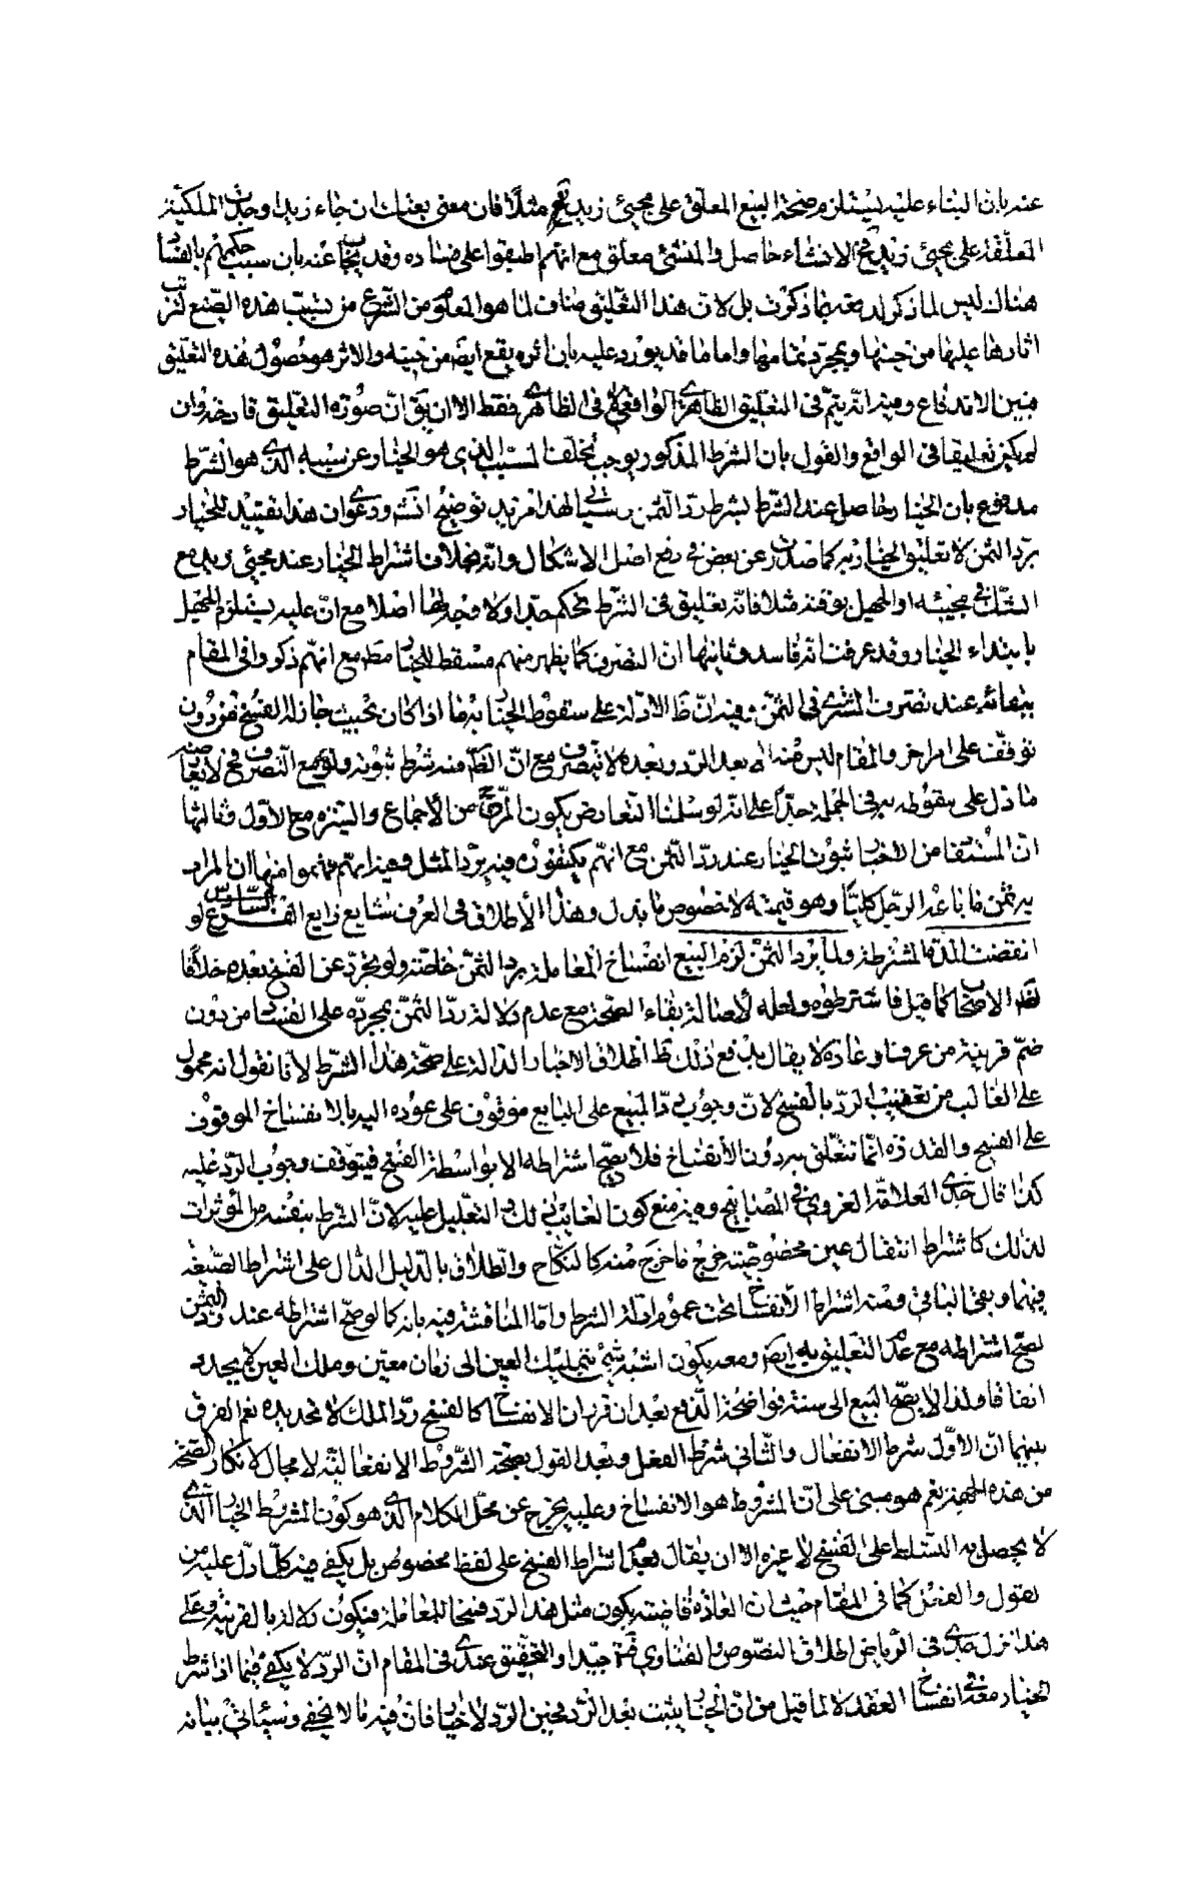 عنه بان البناء عليه يستلزم صحة البيع المعلق على مجيئ زيد مثلا فان معنى بعتك ان جاء زيد اوجدت الملكية
المعلقة على مجيئ زيد فح الانشاء حاصل والمنشئ معلق مع انهم اطبقوا على فساده وقد يجاب عنه بان سبب حكمهم بالفساد
هناك ليس لما ذكر له معه بما ذكرت بل لان هذا التعليق مناف لما هو المعلوم من الشرع من تسبب هذه الصيغ لترتب
اثارها عليها من حينها وبمجرد تمامها واما ما قد يورد عليه بان اثره يقع ايضا من حينه والاثر هو حصول هذه التعليق
فبين الاندفاع وفيه انه يتم في التعليق الظاهري الواقعي لا في الظاهري فقط الا ان يق ان صورة التعليق قادحة وان
لم يكن تعليقا في الواقع والقول بان الشرط المذكور يوجب تخلف المسبب الذي هو الخيار عن سببه الذي هو الشرط
مدفوع بان الخيار حاصل عند الشرط بشرط رد الثمن وسيأتي لهذا مزيد توضيح انشه ودعوى ان هذا تقييد للخيار
برد الثمن لا تعليق الخيار به كما صدر عن بعض في دفع اصل الاشكال وانه بخلاف اشتراط الخيار عند مجيئ زيد مع
الشك في مجيئه او الجهل بوقته مثلا فانه تعليق في الشرط تحكم جدا ولا وجه لها اصلا مع ان عليه يستلزم الجهل
بابتداء الخيار وقد عرفت انه فاسد وثانيها ان التصرف كما يظهر منهم مسقط للخيار مط مع انهم ذكروا في المقام
ببقائه عند تصرف المشتري في الثمن وفيه ان ظ الادلة على سقوط الخيار به ما اذا كان بحيث جاز له الفسخ من دون
توقف على امر اخر والمقام ليس منه اذ بعد الرد وبعده لا تصرف مع ان الظ منه شرط ثبوته ولو مع التصرف فح لا يعارضه
ما دل على سقوطه به في الجملة جدا على انه لو سلمنا التعارض يكون المرجح من الاجماع والسيرة مع الاول وثالثها
ان المستفاد من الاخبار ثبوت الخيار عند رد الثمن مع انهم يكتفون فيه برد المثل وفيه انهم فهموا منها ان المراد
به ثمن ما باعه الرجل كليا وهو قيمته لا خصوص ما بذل وهذا الاطلاق في العرف شايع ذايع الفرع السادس لو
انقضت المدة المشترطة ولما يرد الثمن لزم البيع انفساخ المعاملة برد الثمن خاصة ولو تجرد عن الفسخ بعده خلافا
لظ الاصحاب كما قيل فاشترطوه ولعله لأصالة بقاء الصحة مع عدم دلالة رد الثمن بمجرده على الفسخ من دون
ضم قرينة من عرف او عادة لا يقال يدفع ذلك ظ اطلاق الاخبار الدالة على صحة هذا الشرط لانا نقول انه محمول
على الغالب من تعقيب الرد بالفسخ لان وجوب رد المبيع على البايع موقوف على عوده اليه بالانفساخ الموقوف
على الفسخ والقدرة انما تتعلق به دون الانفساخ فلا يصح اشتراطه الا بواسطة الفسخ فيتوقف وجوب الرد عليه
كذا قال جدي العلامة الغروي في المصابيح وفيه منع كون الغالب ذلك والتعليل عليه لان الشرط بنفسه من المؤثرات
لذلك كاشتراط انتقال عين مخصوصة خرج ما خرج منه كالنكاح والطلاق بالدليل الدال على اشتراط الصيغة
فيهما وبقي الباقي ومنه اشتراط الانفساخ تحت عموم ادلة الشرط واما المناقشة فيه بانه كما لو صح اشتراطه عند رد الثمن
لصح اشتراطه مع عدم التعليق به ايضا ومعه يكون اشبه شئ بتمليك العين الى زمان معين وملك العين لا يحدد
اتفاقا ولذا لا يصح البيع الى سنة فواضحة الدفع بعد ان قرر ان الانفساخ كالفسخ رد الملك لا تحديده نعم الفرق
بينهما ان الاول شرط الانفعال والثاني شرط الفعل وبعد القول بصحة الشروط الانفعالية لا مجال لانكار الصحة
من هذه الجهة نعم هو مبنى على ان المشروط هو الانفساخ وعليه يخرج عن محل الكلام الذي هو كون المشروط الخيار الذي
لا يحصل به السلط على الفسخ لا غيره الا ان يقال بعدم اشتراط الفسخ على لفظ مخصوص بل يكفي فيه كل ما دل عليه من
لقول والفعل كما في المقام حيث ان العادة قاضية بكون مثل هذا الرد فسخا للمعاملة فيكون دلالة بالقرينة وعلى
هذا نزل جدي في الرياض اطلاق النصوص والفتاوى فهو جيد او التحقيق عندي في المقام ان الرد لا يكفي فيما اذا شرط
لخيار معنى انفساخ العقد لا لما قيل من ان الخيار يثبت بعد الرد فحين الرد لا خيار فان فيه ما لا يخفى وسيأتي بيانه